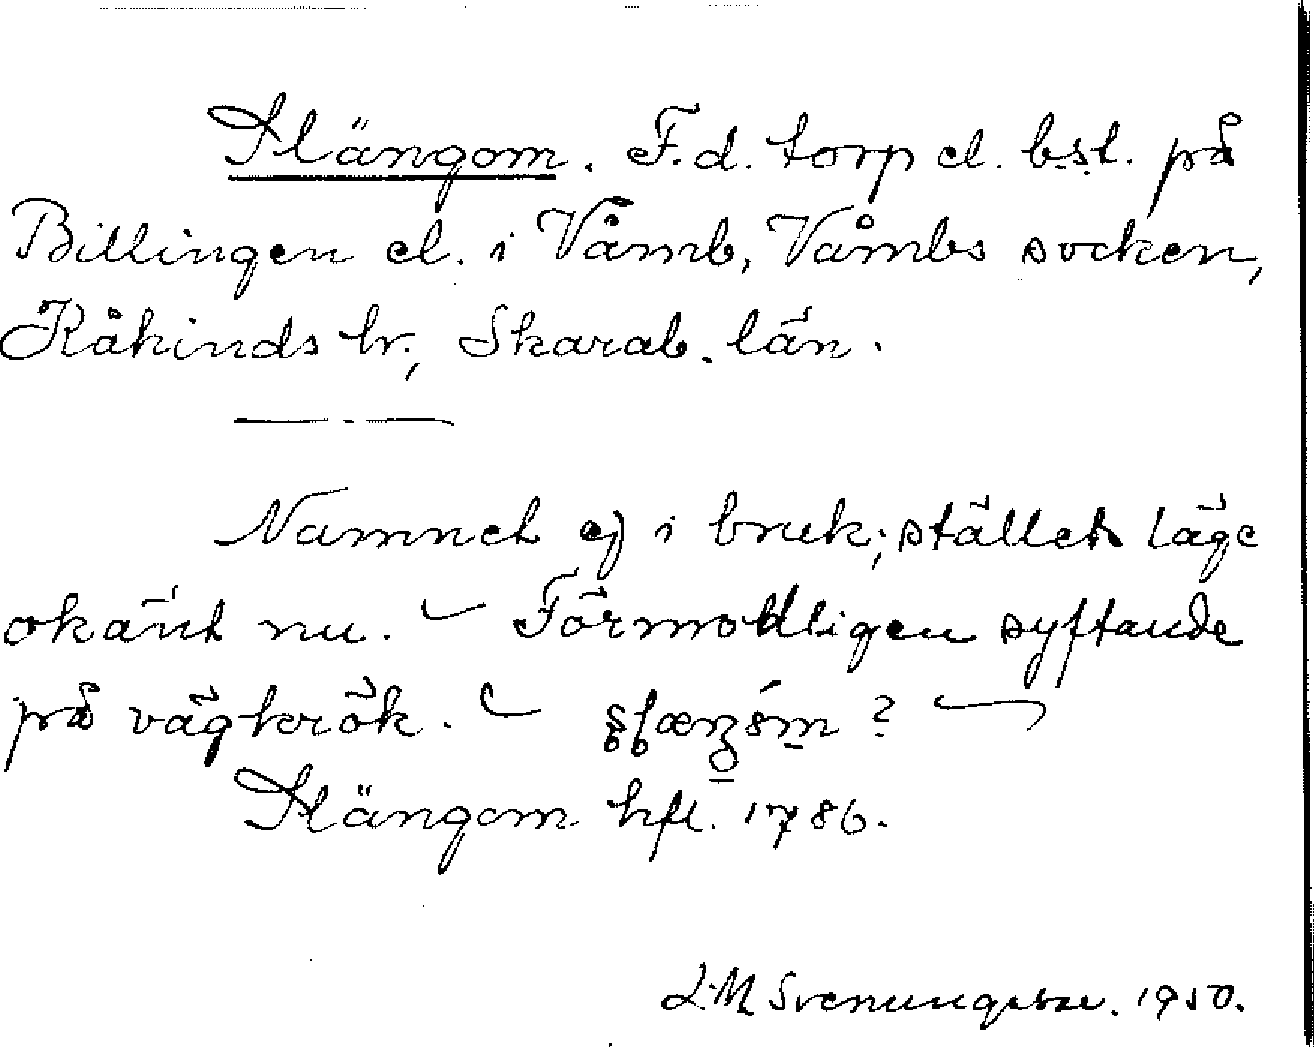 Slängom. F.d. torp el. bst. på
Billingen el. i Våmb, Våmbs socken,
Kåkinds hr., Skarab. län.
Namnet ej i bruk; stället läge
okänt nu. – Förmodligen syftande
på vägkrök. –
Slängom hfl. 1786.
L.M. Svenungsson. 1950.